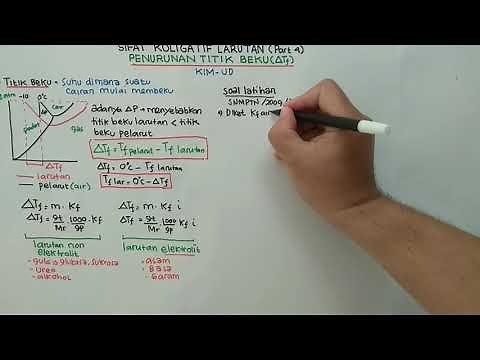 SIFAT KOLIGATIF LARUTAN (Part 4)
PENURUNAN TITIK BEKU (ΔTf)
KIM-UD
Titik Beku = Suhu dimana suatu
cairan mulai membeku
-10 0°C
cair
ΔP
padat
gas
ΔTf
larutan
pelarut (air)
adanya ΔP → menyebabkan
titik beku larutan < titik
beku pelarut
ΔTf = Tf pelarut - Tf larutan
ΔTf = 0°C - Tf larutan
Tf lar = 0°C - ΔTf
ΔTf = m . Kf
ΔTf = gt/Mr 1000/gp . Kf
larutan non
elektrolit
- gula → glukosa, sukrosa
- urea
- alkohol
ΔTf = m . Kf i
ΔTf = gt/Mr 1000/gp . Kf i
larutan elektrolit
- asam
- Basa
- Garam
soal latihan
SNMPTN /2009/
→ Diket Kf air